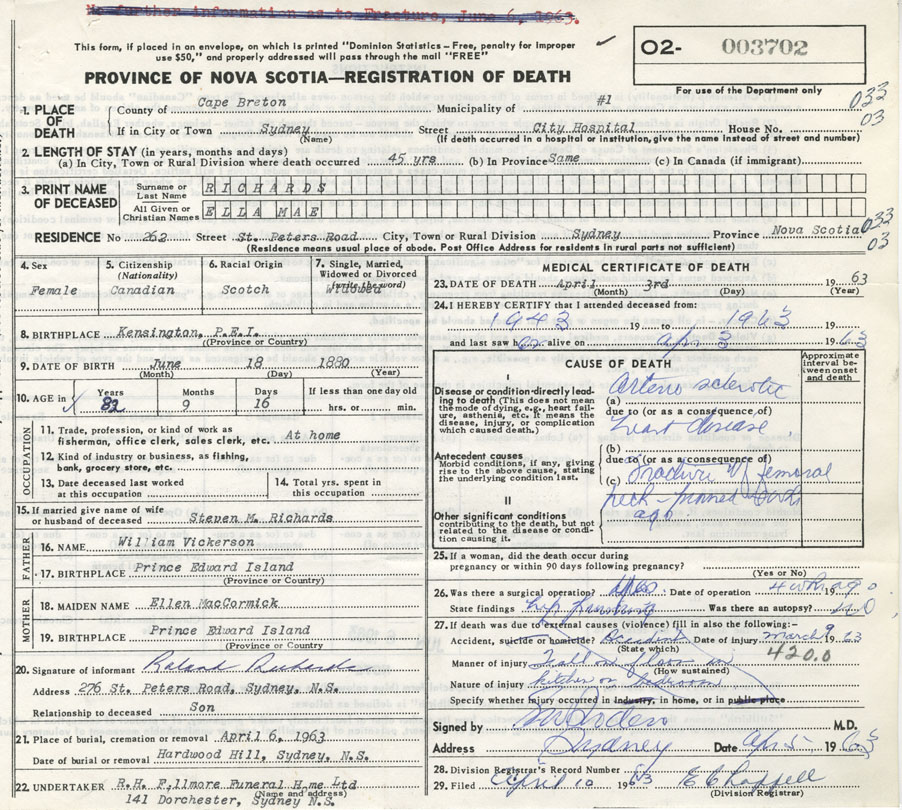 No further information as to Fracture, June 6, 1963.
This form, if placed in an envelope, on which is printed "Dominion Statistics – Free, penalty for improper
use $50," and properly addressed will pass through the mail "FREE"
O2- 003702
For use of the Department only
PROVINCE OF NOVA SCOTIA—REGISTRATION OF DEATH
033
03
1. PLACE OF DEATH
County of Cape Breton Municipality of #1
If in City or Town Sydney (Name) Street City Hospital House No.
(If death occurred in a hospital or institution, give the name instead of street and number)
2. LENGTH OF STAY (in years, months and days)
(a) In City, Town or Rural Division where death occurred 45 yrs (b) In Province Same (c) In Canada (if immigrant)
3. PRINT NAME OF DECEASED
Surname or Last Name RICHARDS
All Given or Christian Names ELLA MAE
033
03
RESIDENCE No 262 Street St. Peters Road City, Town or Rural Division Sydney Province Nova Scotia
(Residence means usual place of abode. Post Office Address for residents in rural parts not sufficient)
4. Sex Female
5. Citizenship (Nationality) Canadian
6. Racial Origin Scotch
7. Single, Married, Widowed or Divorced (write the word) Widowed
8. BIRTHPLACE Kensington, P.E.I.
(Province or Country)
9. DATE OF BIRTH June 18 1880
(Month) (Day) (Year)
10. AGE in Years 82 Months 9 Days 16 If less than one day old hrs. or min.
OCCUPATION
11. Trade, profession, or kind of work as fisherman, office clerk, sales clerk, etc. At home
12. Kind of industry or business, as fishing, bank, grocery store, etc.
13. Date deceased last worked at this occupation
14. Total yrs. spent in this occupation
15. If married give name of wife or husband of deceased Steven M. Richards
FATHER
16. NAME William Vickerson
17. BIRTHPLACE Prince Edward Island
(Province or Country)
MOTHER
18. MAIDEN NAME Ellen MacCormick
19. BIRTHPLACE Prince Edward Island
(Province or Country)
20. Signature of informant Roland Richards
Address 276 St. Peters Road, Sydney, N.S.
Relationship to deceased Son
21. Place of burial, cremation or removal April 6, 1963
Date of burial or removal Hardwood Hill, Sydney, N.S.
22. UNDERTAKER R.H. Fillmore Funeral Home Ltd
(Name and address)
141 Dorchester, Sydney N.S.
MEDICAL CERTIFICATE OF DEATH
23. DATE OF DEATH April 3rd 1963
(Month) (Day) (Year)
24. I HEREBY CERTIFY that I attended deceased from:
1943 19 to 1963 19
and last saw her alive on Apr 3 1963
CAUSE OF DEATH
Approximate interval between onset and death
I
Disease or condition directly leading to death (This does not mean the mode of dying, e.g., heart failure, asthenia, etc. It means the disease, injury, or complication which caused death.)
(a) Arterio sclerotic
due to (or as a consequence of)
heart disease
Antecedent causes
Morbid conditions, if any, giving rise to the above cause, stating the underlying condition last.
(b)
due to (or as a consequence of)
(c) Fracture of femoral
neck - pinned 4 wks
ago
II
Other significant conditions
contributing to the death, but not related to the disease or condition causing it.
25. If a woman, did the death occur during pregnancy or within 90 days following pregnancy?
(Yes or No)
26. Was there a surgical operation? yes Date of operation 4 wks ago 19
State findings hip pinning Was there an autopsy? no
27. If death was due to external causes (violence) fill in also the following:-
Accident, suicide or homicide? Accident Date of injury March 9 1963
(State which)
420.0
Manner of injury Fall on floor in
(How sustained)
Nature of injury kitchen or bedroom
Specify whether injury occurred in industry, in home, or in public place
Signed by M.D.
Address Sydney Date Apr 5 1963
28. Division Registrar's Record Number
29. Filed April 10 1963 E C Chappell
(Division Registrar)